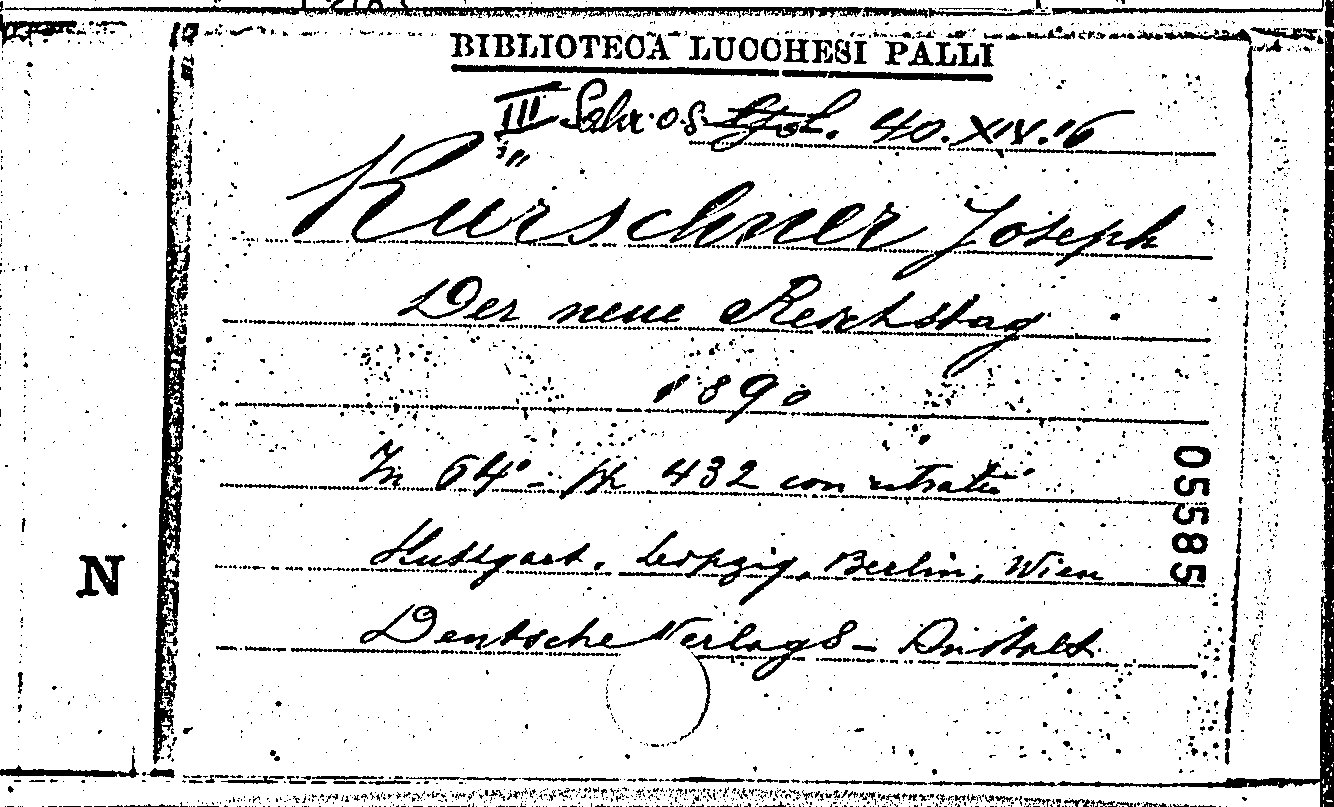 BIBLIOTECA LUCCHESI PALLI
III 40. XIV. 16
Kürschner Joseph
Der neue Reichstag
1890
In 64° - pp 432 con ritratti
Stuttgart, Leipzig, Berlin, Wien
Deutsche Verlags - Anstalt
05585
N